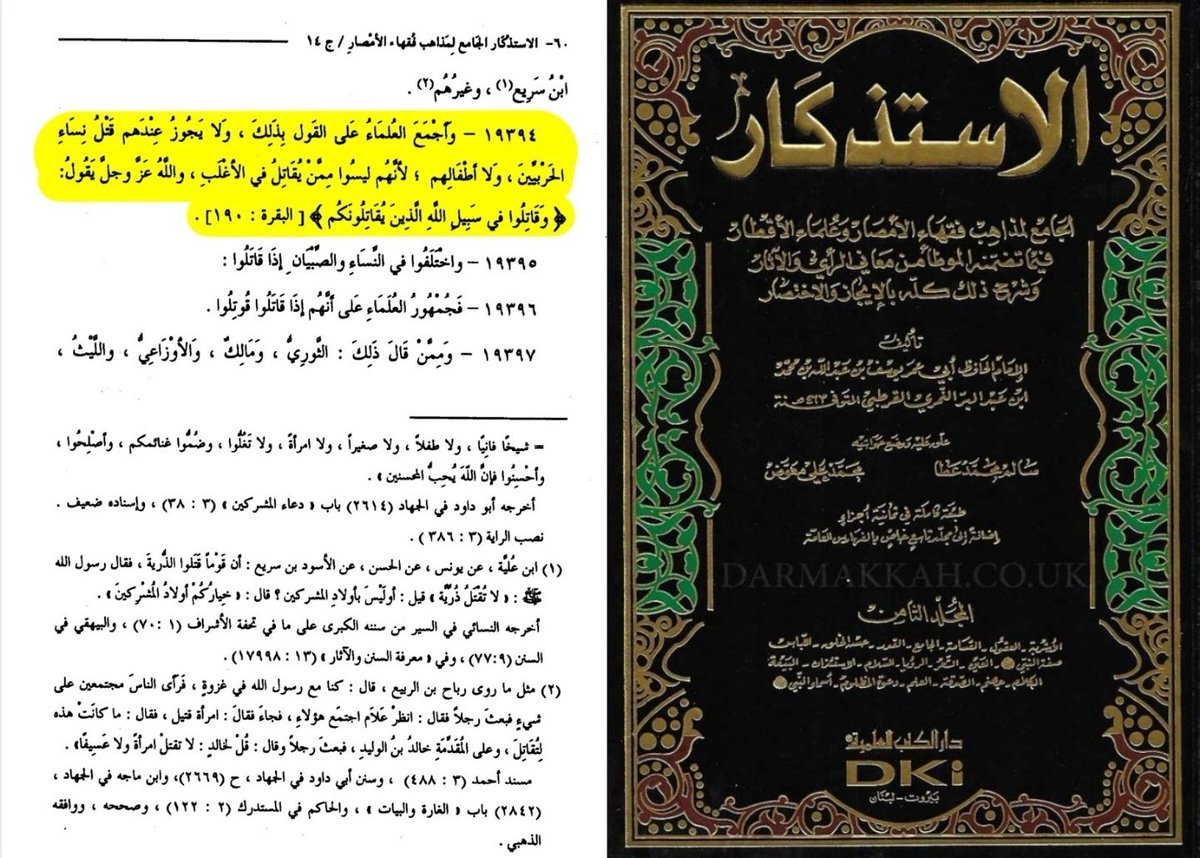 ٦٠- الاستذكار الجامع لمذاهب فقهاء الأمصار / ج ١٤
ابْنُ سَرِيع(١) ، وغيرُهُم(٢) .
١٩٣٩٤ – وأجْمَعَ العُلَماءُ على القَول بِذَلِكَ ، وَلا يَجُوزُ عِنْدَهم قَتْلُ نِسَاءِ
الحَرْبِيَّينَ ، ولا أطْفَالِهم ؛ لأنَّهُم ليسُوا مِمَّنْ يُقَاتِلُ في الأغْلَبِ ، واللَّهُ عَزَّ وجلَّ يَقُولُ:
﴿ وَقَاتِلُوا في سَبِيلِ اللَّهِ الَّذِينَ يُقَاتِلُونَكُم ﴾ [ البقرة : ١٩٠] .
١٩٣٩٥ – واخْتَلَفُوا في النِّسَاءِ والصِّبْيَانِ إذَا قَاتَلُوا :
١٩٣٩٦ – فَجُمْهُورُ العُلَمَاءِ عَلى أنَّهُم إذَا قَاتَلُوا قُوتِلُوا .
١٩٣٩٧ – وَمِمَّنْ قَالَ ذَلِكَ : الثَّورِيُّ ، وَمَالِكٌ ، وَالأوْزَاعِيُّ ، واللَّيْثُ ،
= شيخًا فانِيًا ، ولا طفلاً ، ولا صغيراً ، ولا امرأةً ، ولا تَغُلُّوا ، وضُمُّوا غنائمكم ، وأصْلِحُوا ،
وأحْسِنُوا فإنَّ اللّهَ يُحِبُّ المحسنين » .
أخرجه أبو داود في الجهاد (٢٦١٤) باب « دعاء المشركين » (٣ : ٣٨) ، وإسناده ضعيف .
نصب الراية (٣ : ٣٨٦ ) .
(١) ابن عُلَيَّة ، عن يونس ، عن الحسن ، عن الأسود بن سريع : أن قَوْماً قَتَلوا الذُّريةَ ، فقال رسول الله
ﷺ : « لا تُقْتَلُ ذُرِّيَّة » قيل : أوليْسَ بأولادِ المشركين ؟ قال : « خِيارُكُمْ أولادُ المُشْرِكين » .
أخرجه النسائي في السير من سننه الكبرى على ما في تحفة الأشراف (١ : ٧٠) ، والبيهقي في
السنن (٩:٧٧) ، وفي « معرفة السنن والآثار » (١٣ : ١٧٩٩٨) .
(٢) مثل ما روى رباح بن الربيع ، قال : كنا مع رسول الله في غزوةٍ ، فَرَأى الناسَ مجتمعين على
شيءٍ فبعثَ رجلاً فقال : انظرْ عَلامَ اجتمَع هؤلاءِ ، فجاءَ فقالَ : امرأة قتيل ، فقال : ما كَانَتْ هذه
لِتُقَاتِلَ ، وعلى المُقَدِّمَةِ خالدُ بنُ الوليدِ ، فبعثَ رجلاً وقال : قُلْ لخالدٍ : لا تقتلنَّ امرأةً ولا عَسِيفًا» .
مسند أحمد (٣ : ٤٨٨) ، وسنن أبي داود في الجهاد ، ح (٢٦٦٩)، وابن ماجه في الجهاد ،
(٢٨٤٢) باب « الغارة والبيات » ، والحاكم في المستدرك (٢ : ١٢٢) ، وصححه ، ووافقه
الذهبي .
الاستذكار
الجامع لمذاهب فقهاء الأمصار وعلماء الأقطار
فيما تضمنه الموطأ من معاني الرأي والآثار
وشرح ذلك كله بالإيجاز والاختصار
تأليف
الإمام الحافظ أبي عمر يوسف بن عبد الله بن محمد
ابن عبد البر النمري القرطبي المتوفى سنة ٤٦٣ هـ
علق عليه ووضع حواشيه
سالم محمد عطا محمد علي معوض
طبعة كاملة في ثمانية أجزاء
إضافة إلى مجلد تاسع خاص بالفهارس العامة
DARMAKKAH.CO.UK
المجلد الثامن
الأشربة - العقول - القسامة - الجامع - القدر - حسن الخلق - اللباس
صفة النبي ﷺ - العين - الشعر - الرؤيا - السلام - الاستئذان - البيعة
الكلام - جهنم - الصدقة - العلم - دعوة المظلوم - أسماء النبي ﷺ
دار الكتب العلمية
DKi
بيروت - لبنان